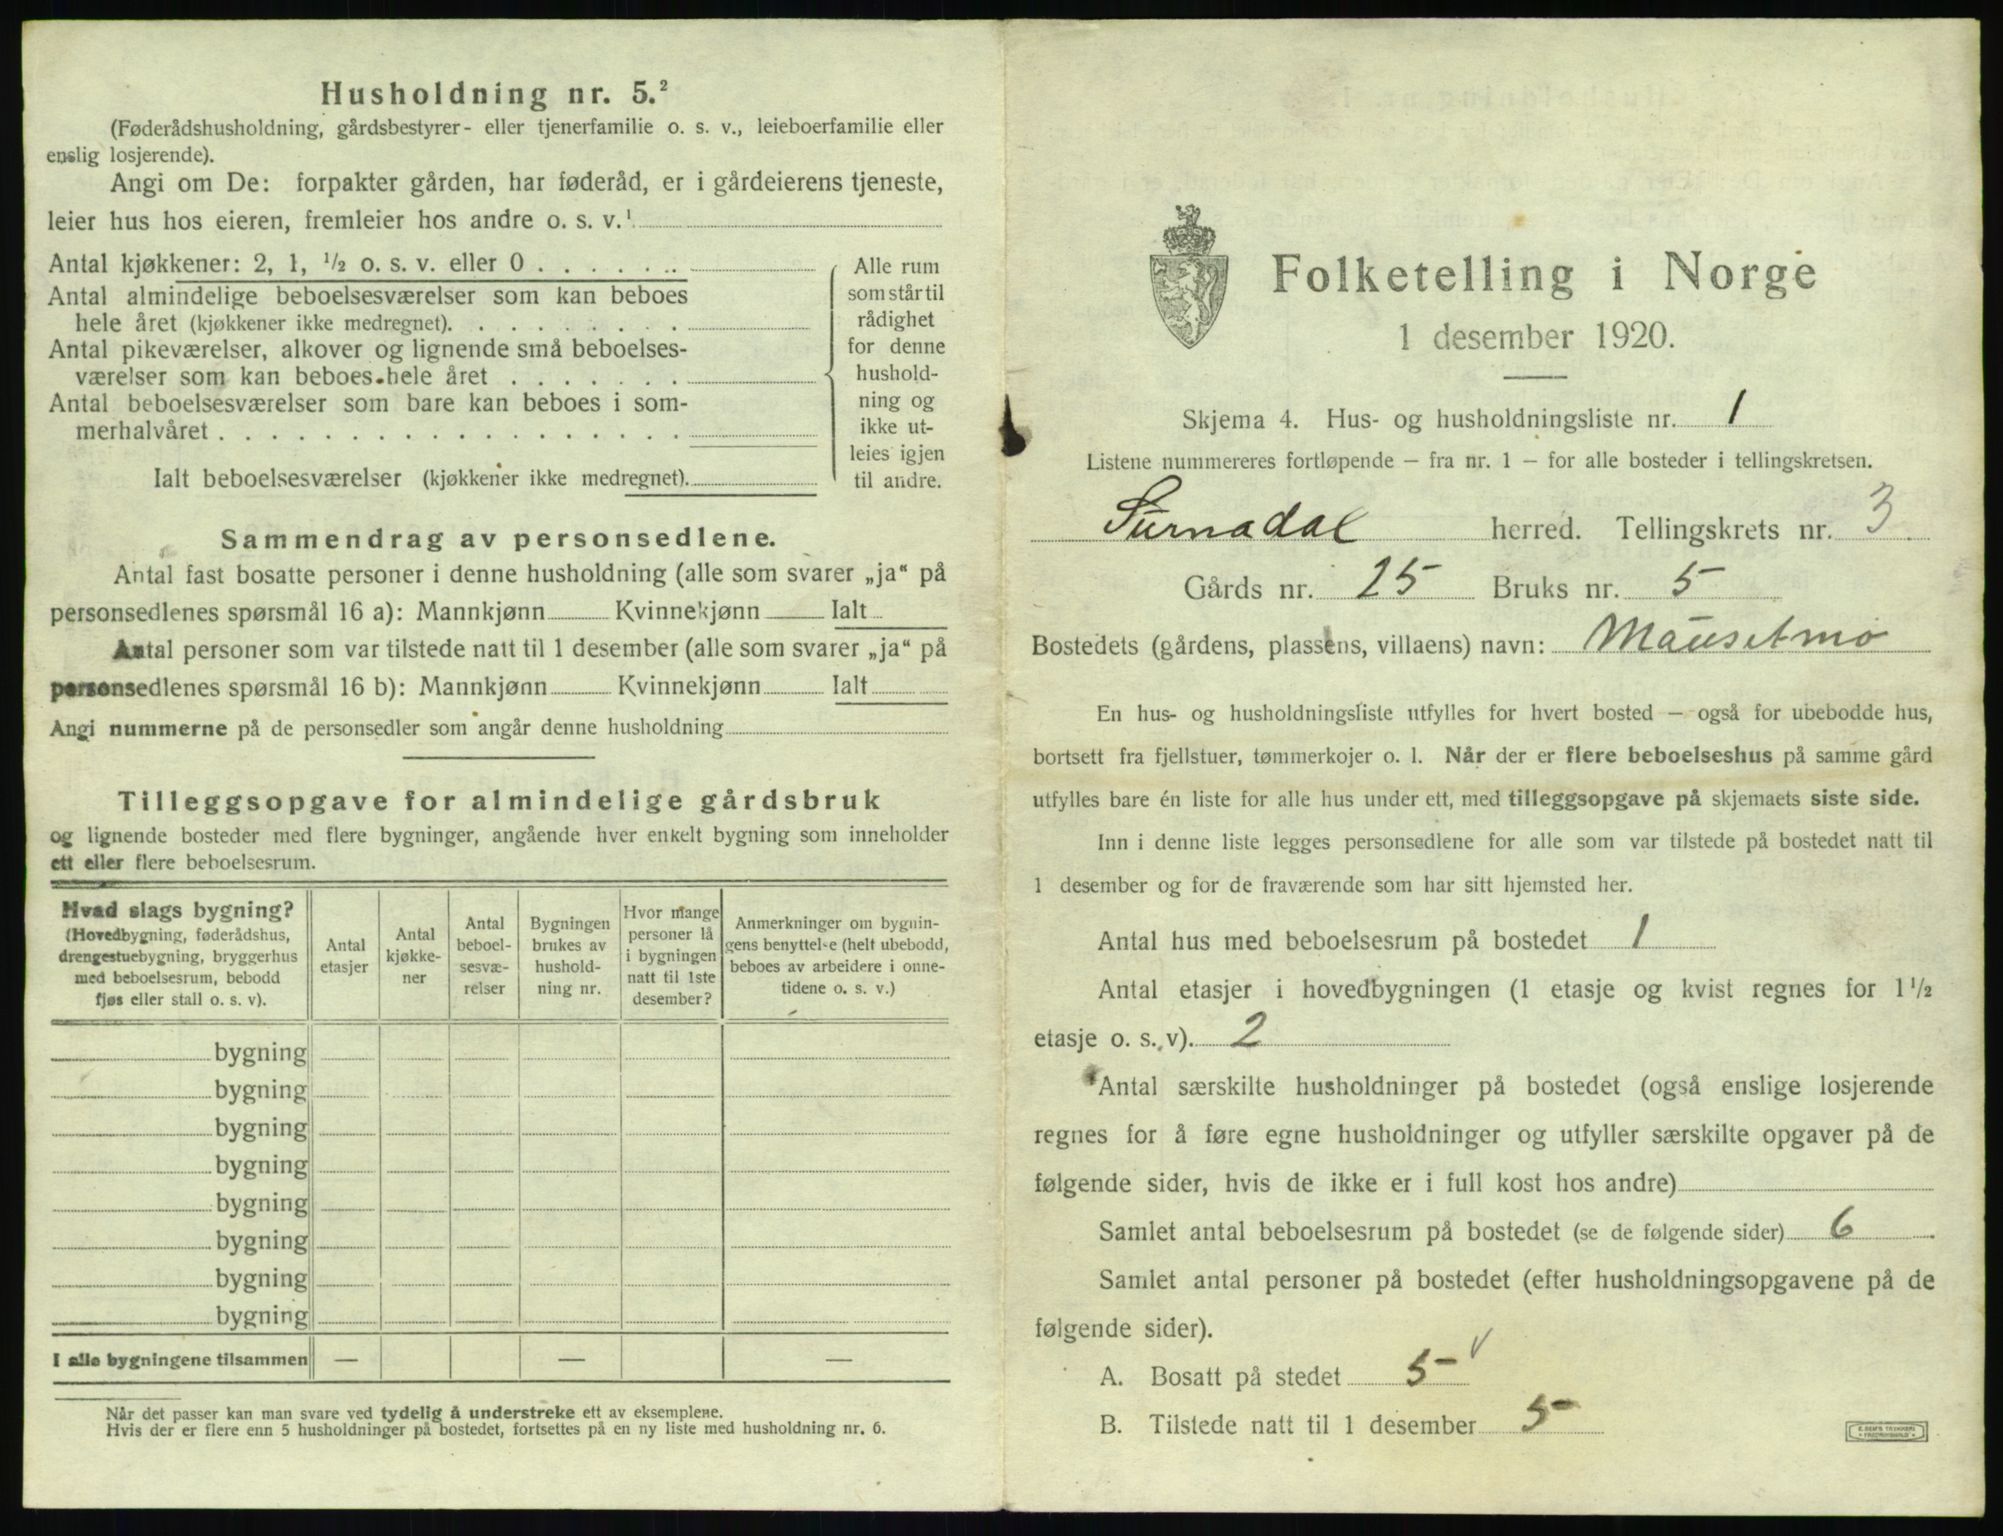 Husholdning nr. 5.²
(Føderådshusholdning, gårdsbestyrer- eller tjenerfamilie o. s. v., leieboerfamilie eller
enslig losjerende).
Angi om De: forpakter gården, har føderåd, er i gårdeierens tjeneste,
leier hus hos eieren, fremleier hos andre o. s. v.¹
Antal kjøkkener: 2, 1, ½ o. s. v. eller 0
Antal almindelige beboelsesværelser som kan beboes
hele året (kjøkkener ikke medregnet).
Antal pikeværelser, alkover og lignende små beboelses-
værelser som kan beboes hele året
Antal beboelsesværelser som bare kan beboes i som-
merhalvåret
Ialt beboelsesværelser (kjøkkener ikke medregnet).
Alle rum
som står til
rådighet
for denne
hushold-
ning og
ikke ut-
leies igjen
til andre.
Sammendrag av personsedlene.
Antal fast bosatte personer i denne husholdning (alle som svarer „ja“ på
personsedlenes spørsmål 16 a): Mannkjønn Kvinnekjønn Ialt
Antal personer som var tilstede natt til 1 desember (alle som svarer „ja“ på
personsedlenes spørsmål 16 b): Mannkjønn Kvinnekjønn Ialt
Angi nummerne på de personsedler som angår denne husholdning
Tilleggsopgave for almindelige gårdsbruk
og lignende bosteder med flere bygninger, angående hver enkelt bygning som inneholder
ett eller flere beboelsesrum.
Hvad slags bygning?
(Hovedbygning, føderådshus,
drengestuebygning, bryggerhus
med beboelsesrum, bebodd
fjøs eller stall o. s. v).
Antal
etasjer
Antal
kjøkke-
ner
Antal
beboel-
sesvæ-
relser
Bygningen
brukes av
hushold-
ning nr.
Hvor mange
personer lå
i bygningen
natt til 1ste
desember?
Anmerkninger om bygnin-
gens benyttelse (helt ubebodd,
beboes av arbeidere i onne-
tidene o. s. v.)
bygning
bygning
bygning
bygning
bygning
bygning
bygning
bygning
I alle bygningene tilsammen — — —
Når det passer kan man svare ved tydelig å understreke ett av eksemplene.
Hvis der er flere enn 5 husholdninger på bostedet, fortsettes på en ny liste med husholdning nr. 6.
Folketelling i Norge
1 desember 1920.
Skjema 4. Hus- og husholdningsliste nr. 1
Listene nummereres fortløpende – fra nr. 1 – for alle bosteder i tellingskretsen.
Surnadal herred. Tellingskrets nr. 3
Gårds nr. 25 Bruks nr. 5
Bostedets (gårdens, plassens, villaens) navn: Mausetmo
En hus- og husholdningsliste utfylles for hvert bosted – også for ubebodde hus,
bortsett fra fjellstuer, tømmerkojer o. l. Når der er flere beboelseshus på samme gård
utfylles bare én liste for alle hus under ett, med tilleggsopgave på skjemaets siste side.
Inn i denne liste legges personsedlene for alle som var tilstede på bostedet natt til
1 desember og for de fraværende som har sitt hjemsted her.
Antal hus med beboelsesrum på bostedet 1
Antal etasjer i hovedbygningen (1 etasje og kvist regnes for 1½
etasje o. s. v). 2
Antal særskilte husholdninger på bostedet (også enslige losjerende
regnes for å føre egne husholdninger og utfyller særskilte opgaver på de
følgende sider, hvis de ikke er i full kost hos andre)
Samlet antal beboelsesrum på bostedet (se de følgende sider) 6
Samlet antal personer på bostedet (efter husholdningsopgavene på de
følgende sider).
A. Bosatt på stedet 5 v
B. Tilstede natt til 1 desember 5